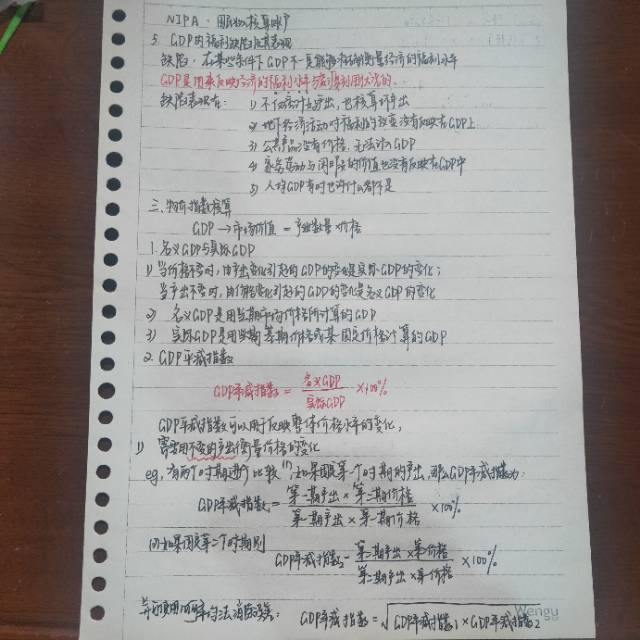 NIPA. 国民收入核算账户
5. GDP的福利缺陷及其表现
缺陷：在某些条件下GDP不一定能够准确衡量经济的福利水平
GDP是用来反映经济的福利水平
缺陷表现在：1) 不仅核算产出，也核算坏产出
2) 地下经济活动对福利的改变没有反映在GDP上
3) 公共产品没有价格，无法计入GDP
4) 家务劳动与闲暇的价值也没有反映在GDP中
5) 人均GDP有时也说明什么都不是
三、物价指数核算
GDP → 市场价值 = 产出数量 × 价格
1. 名义GDP与实际GDP
1) 当价格不变时，由产出变化引起的GDP的变化是实际GDP的变化；
当产出不变时，由价格变化引起的GDP的变化是名义GDP的变化
2) 名义GDP是用当期市场价格所计算的GDP
3) 实际GDP是用当期基期价格或某固定价格计算的GDP
2. GDP平减指数
GDP平减指数 = 名义GDP / 实际GDP × 100%
GDP平减指数可以用于反映整体价格水平的变化；
1) 需要用不变的产出衡量价格的变化
eg. 有两个时期进行比较 (1) 如果固定第一个时期的产出，那么GDP平减指数为：
GDP平减指数1 = 第一期产出 × 第二期价格 / 第一期产出 × 第一期价格 × 100%
(2) 如果固定第二个时期则
GDP平减指数2 = 第二期产出 × 第二期价格 / 第二期产出 × 第一期价格 × 100%
GDP平减指数 = √GDP平减指数1 × GDP平减指数2
Wengu